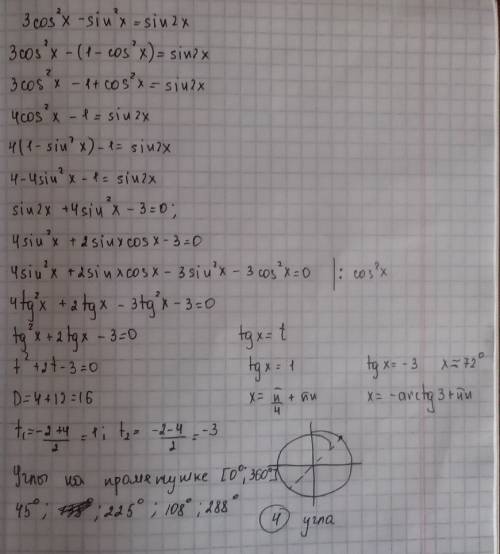 3cos²x - sin²x = sin2x
3cos²x - (1 - cos²x) = sin2x
3cos²x - 1 + cos²x = sin2x
4cos²x - 1 = sin2x
4(1 - sin²x) - 1 = sin2x
4 - 4sin²x - 1 = sin2x
sin2x + 4sin²x - 3 = 0;
4sin²x + 2sinxcosx - 3 = 0
4sin²x + 2sinxcosx - 3sin²x - 3cos²x = 0 | : cos²x
4tg²x + 2tgx - 3tg²x - 3 = 0
tg²x + 2tgx - 3 = 0 tgx = t
t² + 2t - 3 = 0 tgx = 1 tgx = -3 x ≈ 72°
D = 4 + 12 = 16 x = π/4 + πn x = -arctg3 + πn
t₁ = (-2+4)/2 = 1; t₂ = (-2-4)/2 = -3
Углы на промежутке [0°; 360°]
45°; 225°; 108°; 288°
4 угла